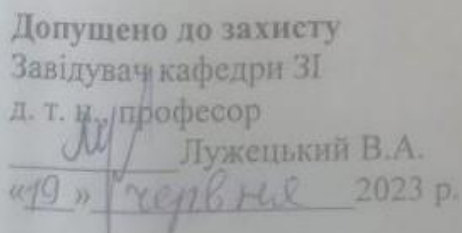 Допущено до захисту
Завідувач кафедри ЗІ
д. т. н., професор
Лужецький В.А.
«19» червня 2023 р.